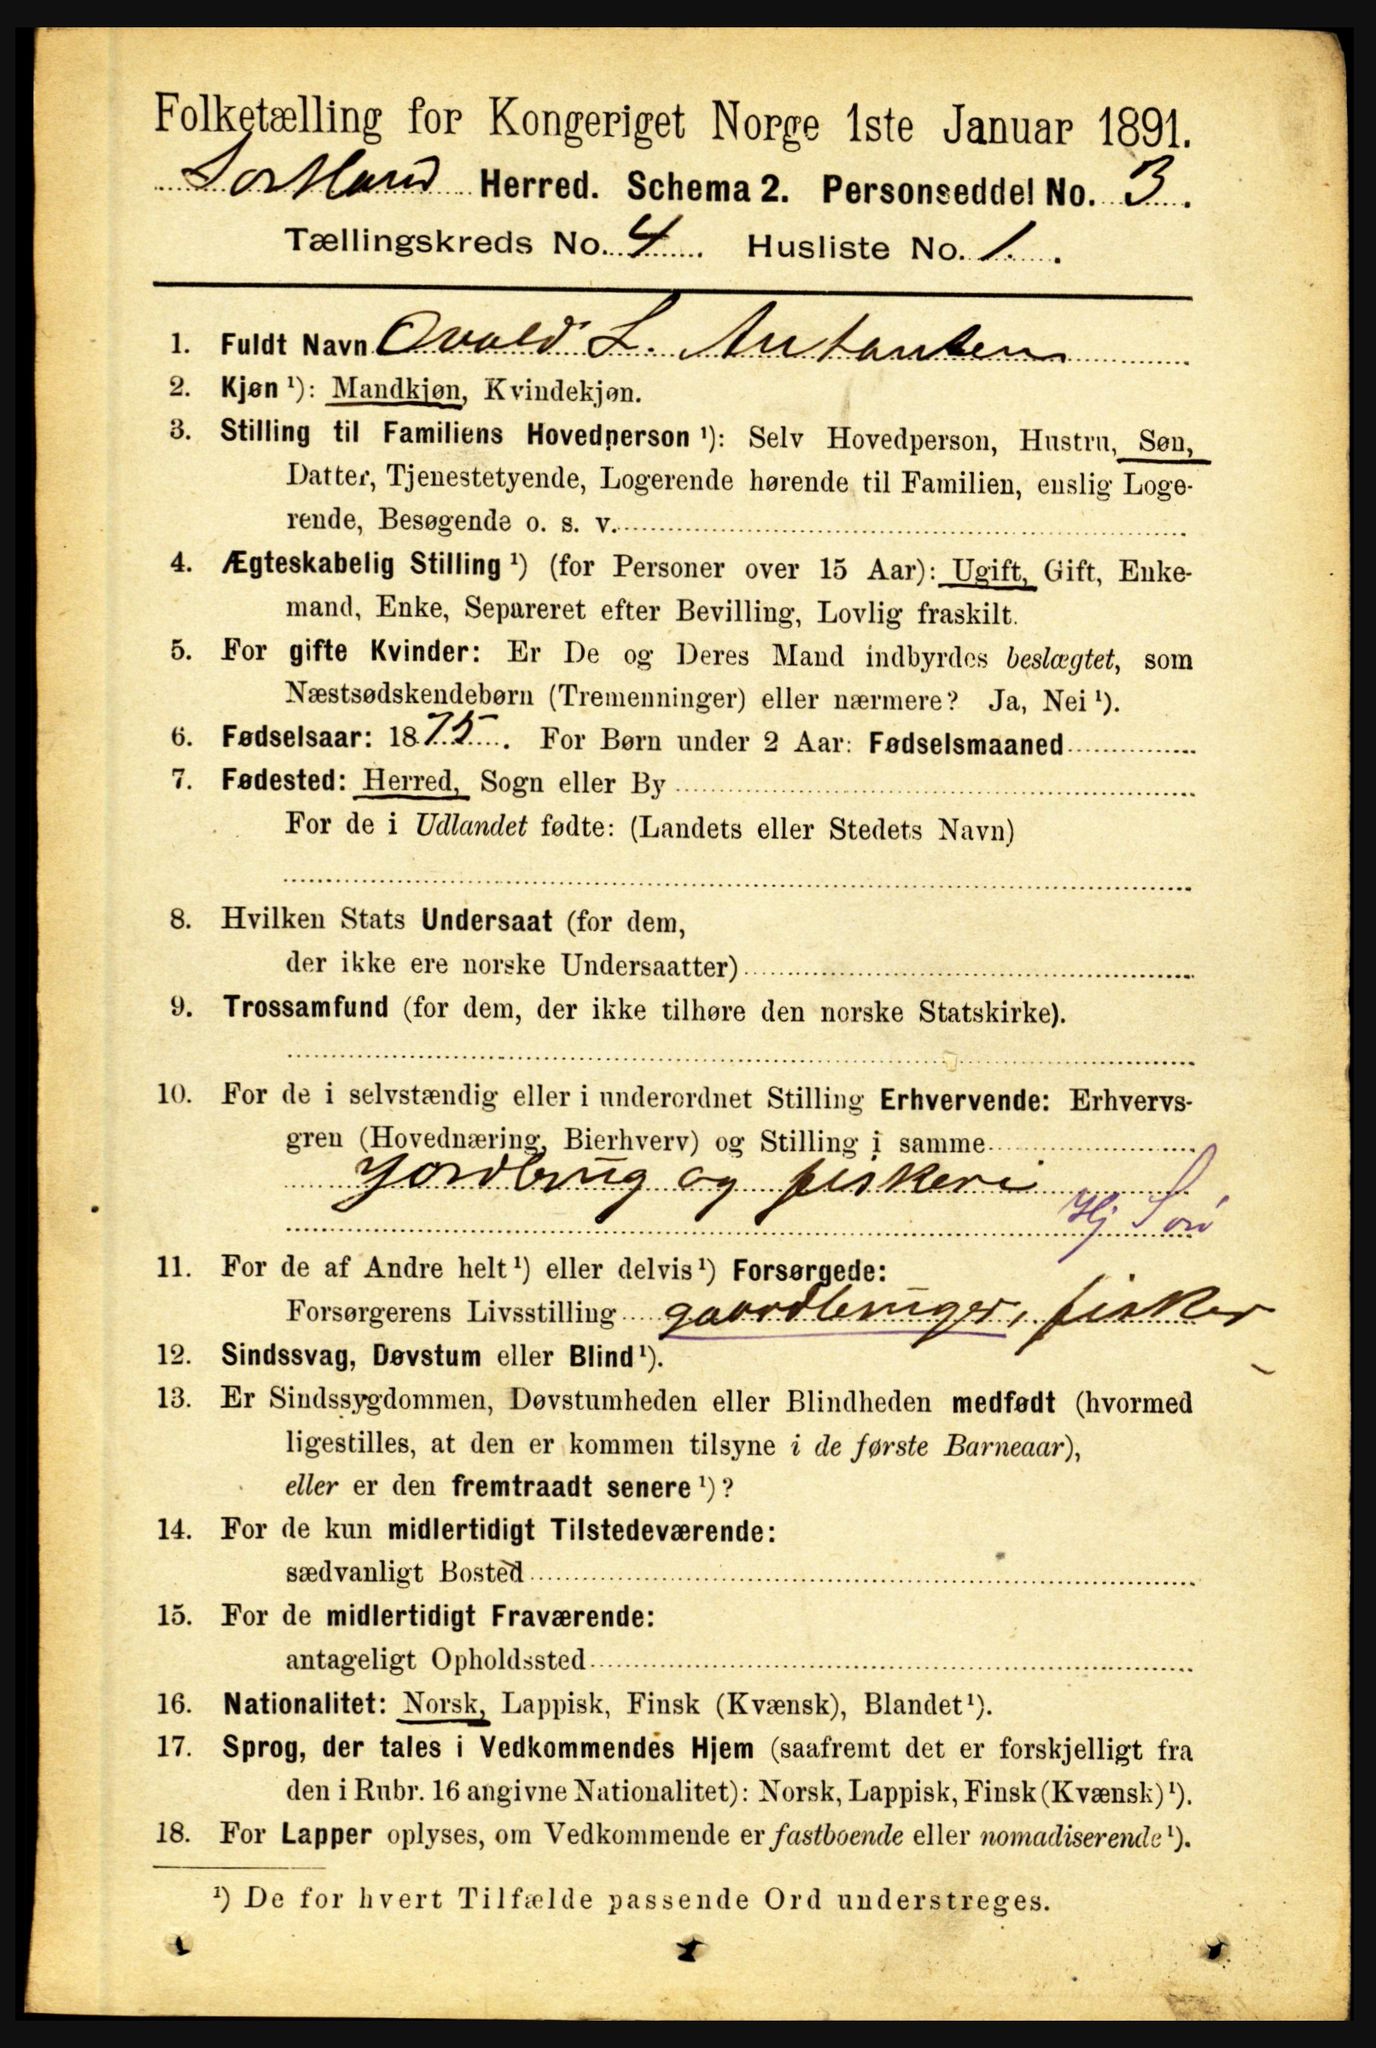 Folketælling for Kongeriget Norge 1ste Januar 1891.
Sortland Herred. Schema 2. Personseddel No. 3.
Tællingskreds No. 4 Husliste No. 1.
1. Fuldt Navn Ovald L. Antonsen
2. Kjøn ¹): Mandkjøn, Kvindekjøn.
3. Stilling til Familiens Hovedperson ¹): Selv Hovedperson, Hustru, Søn,
Datter, Tjenestetyende, Logerende hørende til Familien, enslig Loge-
rende, Besøgende o. s. v.
4. Ægteskabelig Stilling ¹) (for Personer over 15 Aar): Ugift, Gift, Enke-
mand, Enke, Separeret efter Bevilling, Lovlig fraskilt.
5. For gifte Kvinder: Er De og Deres Mand indbyrdes beslægtet, som
Næstsødskendebørn (Tremenninger) eller nærmere? Ja, Nei ¹).
6. Fødselsaar: 1875. For Børn under 2 Aar: Fødselsmaaned
7. Fødested: Herred, Sogn eller By
For de i Udlandet fødte: (Landets eller Stedets Navn)
8. Hvilken Stats Undersaat (for dem,
der ikke ere norske Undersaatter)
9. Trossamfund (for dem, der ikke tilhøre den norske Statskirke).
10. For de i selvstændig eller i underordnet Stilling Erhvervende: Erhvervs-
gren (Hovednæring, Bierhverv) og Stilling i samme
Jordbrug og fiskeri
Hj
11. For de af Andre helt ¹) eller delvis ¹) Forsørgede:
Forsørgerens Livsstilling gaardbruger, fisker
12. Sindssvag, Døvstum eller Blind ¹).
13. Er Sindssygdommen, Døvstumheden eller Blindheden medfødt (hvormed
ligestilles, at den er kommen tilsyne i de første Barneaar),
eller er den fremtraadt senere ¹)?
14. For de kun midlertidigt Tilstedeværende:
sædvanligt Bosted
15. For de midlertidigt Fraværende:
antageligt Opholdssted
16. Nationalitet: Norsk, Lappisk, Finsk (Kvænsk), Blandet ¹).
17. Sprog, der tales i Vedkommendes Hjem (saafremt det er forskjelligt fra
den i Rubr. 16 angivne Nationalitet): Norsk, Lappisk, Finsk (Kvænsk) ¹).
18. For Lapper oplyses, om Vedkommende er fastboende eller nomadiserende ¹).
¹) De for hvert Tilfælde passende Ord understreges.